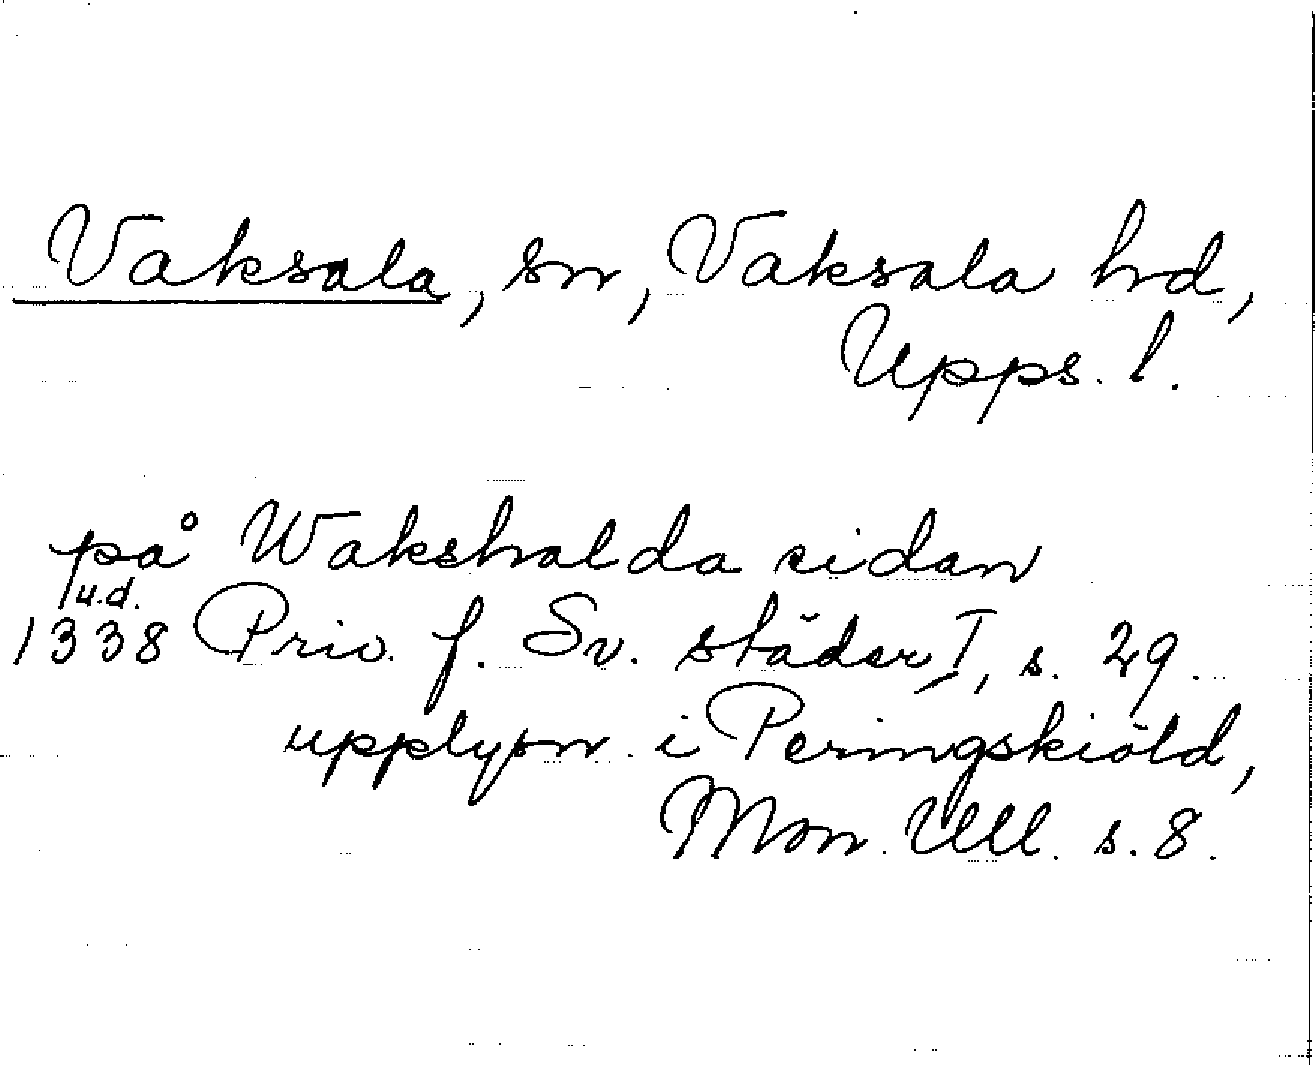 Vaksala, sn, Vaksala hd,
Upps. l.
på Wakshalda sidan
u.d.
1338 Priv. f. Sv. städer I, s. 29.
upplypn. i Peringskiöld,
Mon. Ull. s. 8.